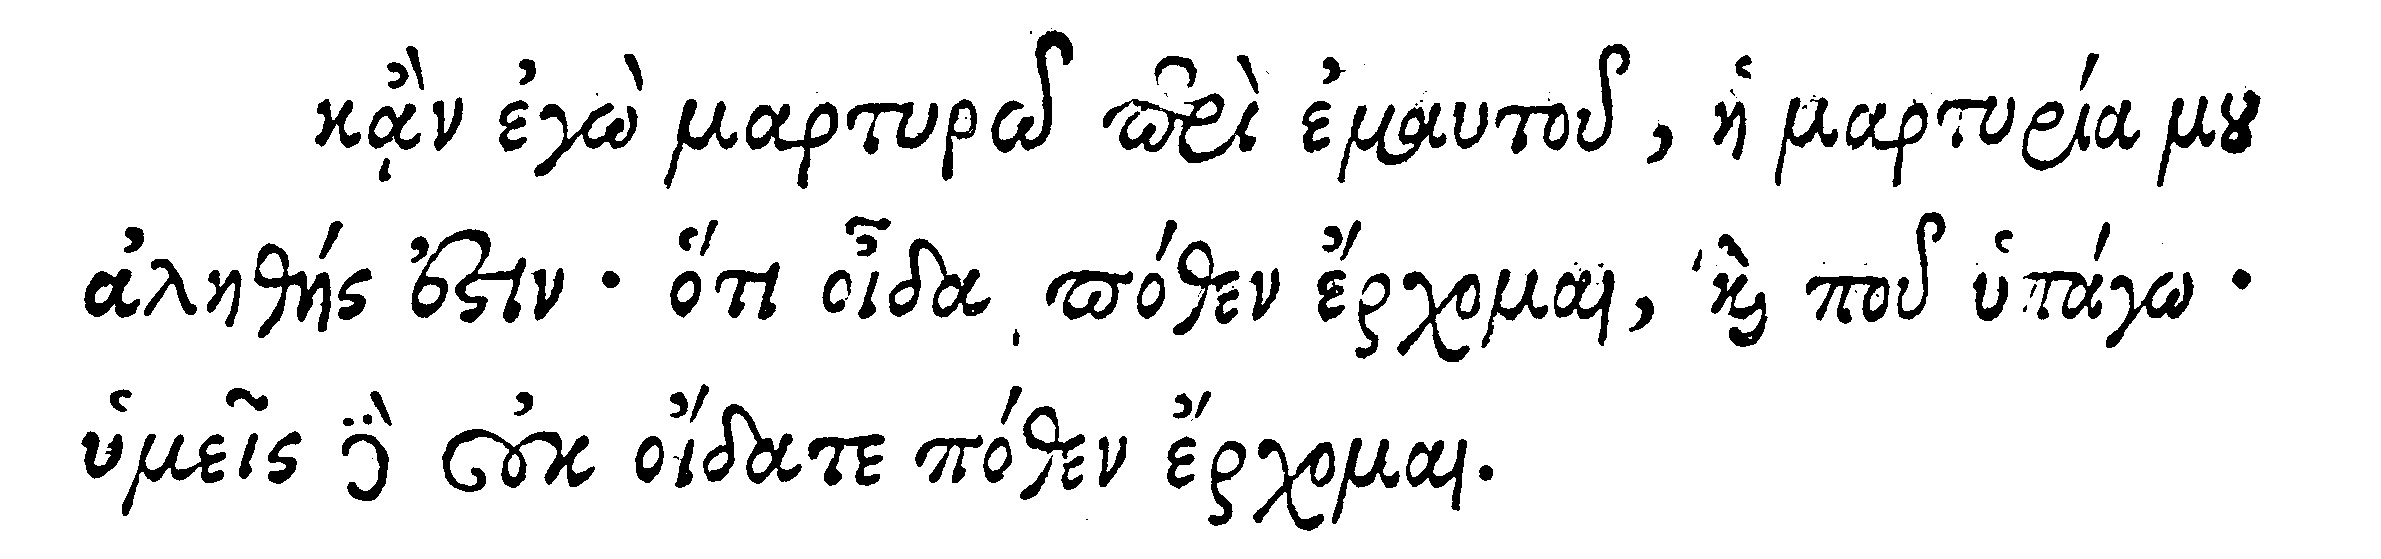 κᾂν ἐγὼ μαρτυρῶ ϖερὶ ἐμαυτοῦ, ἡ μαρτυρία μȣ
ἀληθής ἐϛιν· ὅτι οἶδα ϖόθεν ἔρχομαι, ϗ ποῦ ὑπάγω·
ὑμεῖς δὲ οὐκ οἴδατε πόθεν ἔρχομαι.